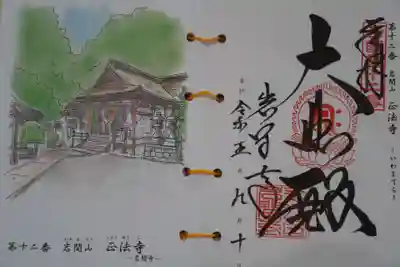 第十二番 岩間山 正法寺
~いわまでら~
奉拝
大悲殿
岩間寺
令和五年九月十日
第十二番 岩間山 正法寺
~岩間寺~